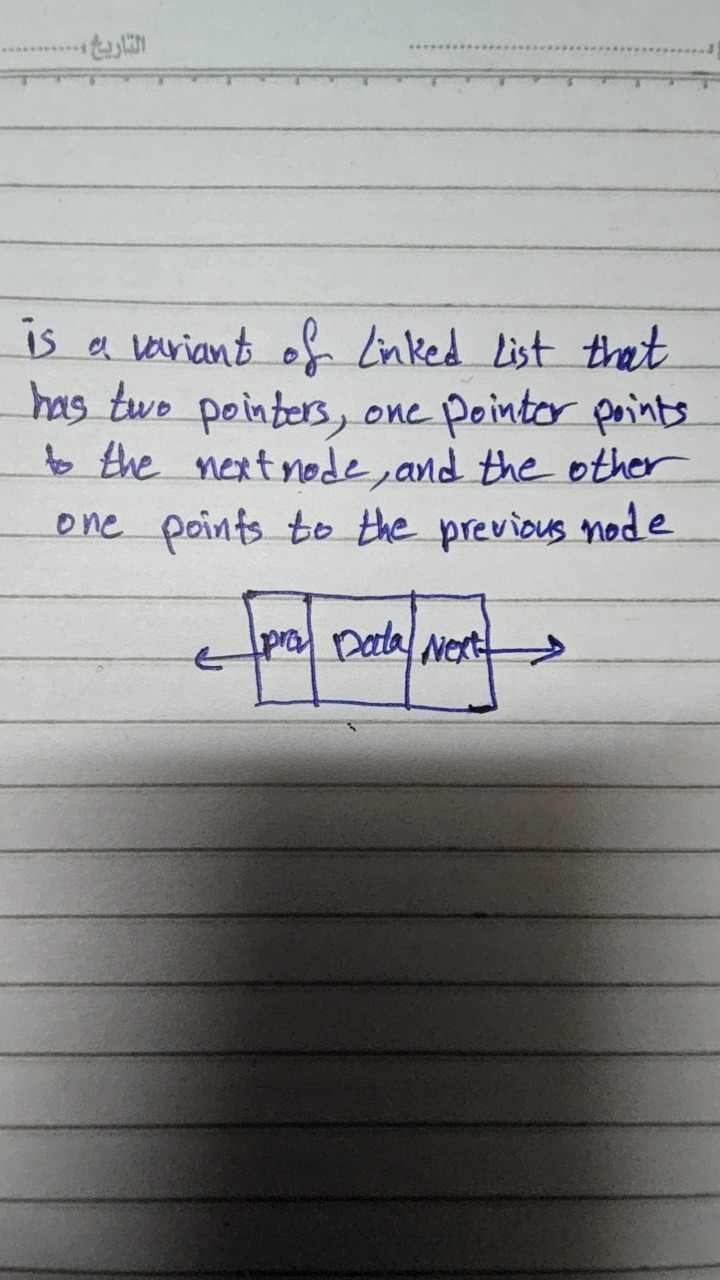 التاريخ:
is a variant of Linked List that
has two pointers, one pointer points
to the next node, and the other
one points to the previous node
prev Data Next